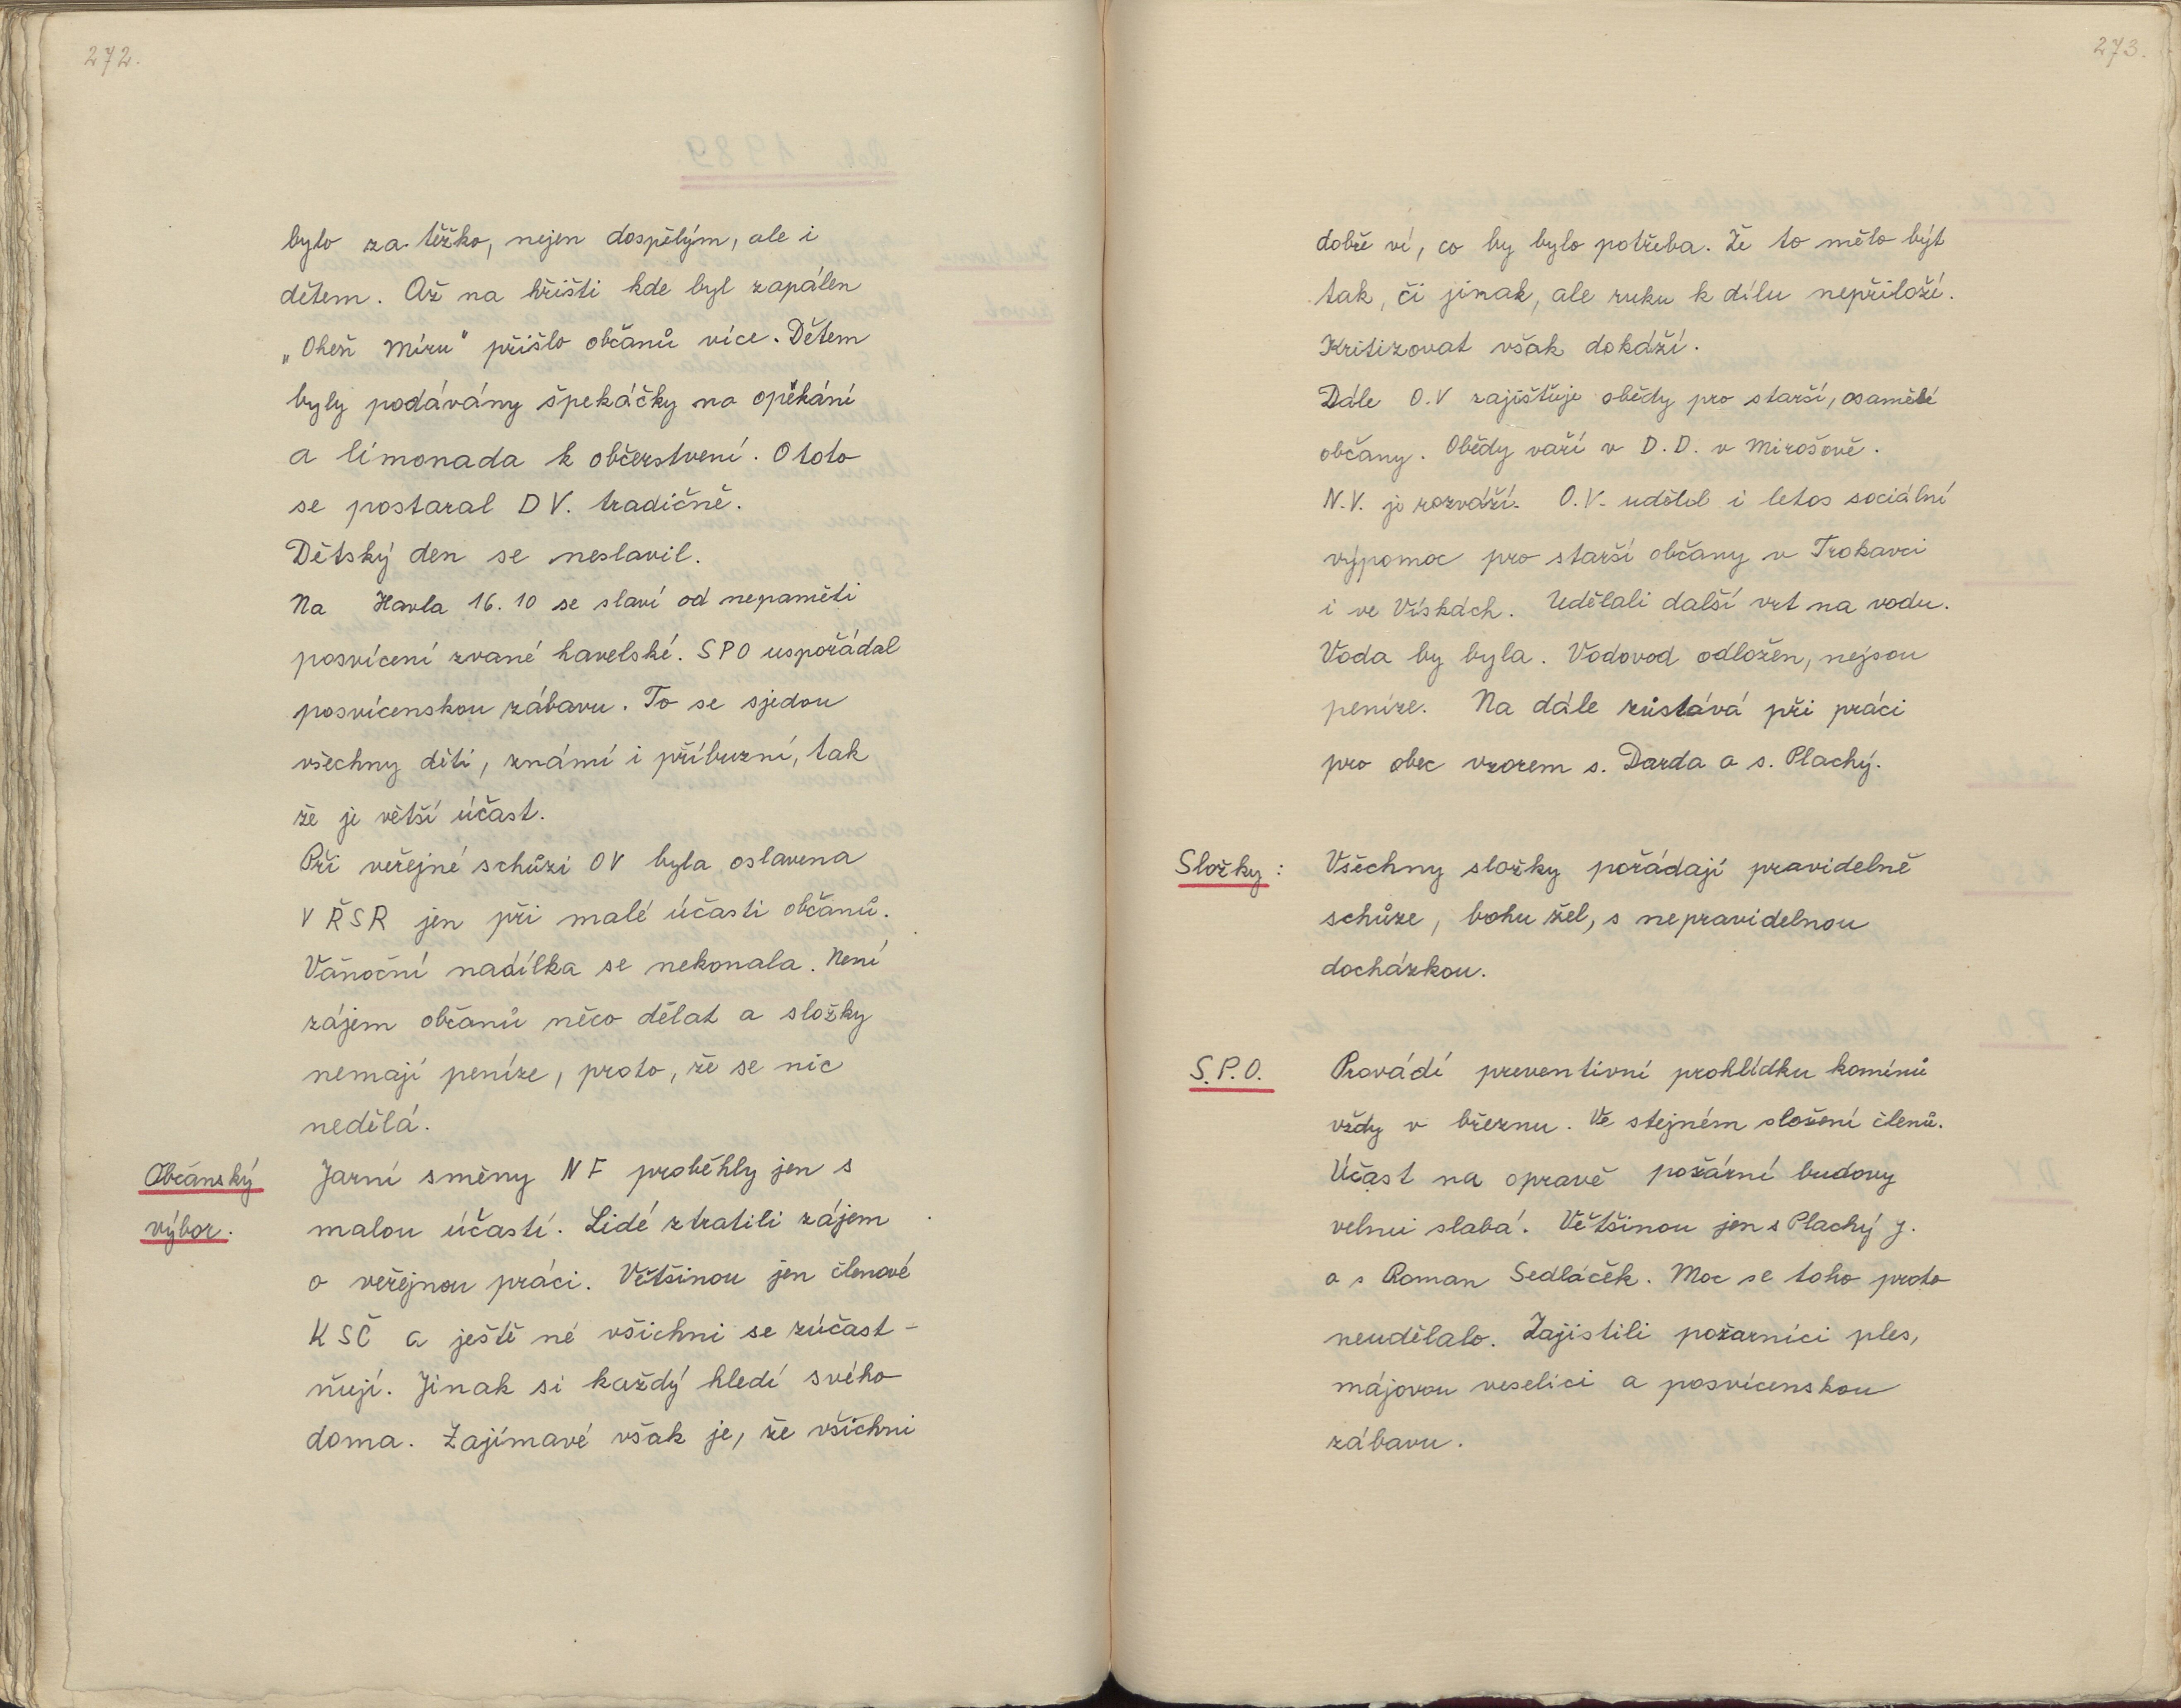 272.
bylo za těžko, nejen dospělým, ale i
dětem. Až na hřišti kde byl zapálen
„Oheň Míru" přišlo občanů více. Dětem
byly podávány špekáčky na opékání
a limonada k občerstvení. O toto
se postaral DV. tradičně.
Dětský den se neslavil.
Na Havla 16. 10 se slaví od nepaměti
posvícení zvané havelské. SPO uspořádal
posvícenskou zábavu. To se sjedou
všechny děti, známí i příbuzní, tak
že je větší účast.
Při veřejné schůzi OV byla oslavena
VŘSR jen při malé účasti občanů.
Vánoční nadílka se nekonala. Není
zájem občanů něco dělat a složky
nemají peníze, proto, že se nic
nedělá.
Občanský
výbor.
Jarní směny NF proběhly jen s
malou účastí. Lidé ztratili zájem
o veřejnou práci. Většinou jen členové
KSČ a ještě né všichni se zúčast-
ňují. Jinak si každý hledí svého
doma. Zajímavé však je, že všichni
273.
dobře ví, co by bylo potřeba. Že to mělo být
tak, či jinak, ale ruku k dílu nepřiloží.
Kritizovat však dokáží.
Dále O.V zajišťuje obědy pro starší, osamělé
občany. Obědy vaří v D.D. v Mirošově.
N.V. je rozváží. O.V. udělil i letos sociální
výpomoc pro starší občany v Trokavci
i ve Vískách. Udělali další vrt na vodu.
Voda by byla. Vodovod odložen, nejsou
peníze. Na dále zůstává při práci
pro obec vzorem s. Darda a s. Plachý.
Složky:
Všechny složky pořádají pravidelně
schůze, bohu žel, s nepravidelnou
docházkou.
S.P.O.
Provádí preventivní prohlídku komínů
vždy v březnu. Ve stejném složení členů.
Účast na opravě požární budovy
velmi slabá. Většinou jen s Plachý J.
a s Roman Sedláček. Moc se toho proto
neudělalo. Zajistili požarníci ples,
májovou veselici a posvícenskou
zábavu.